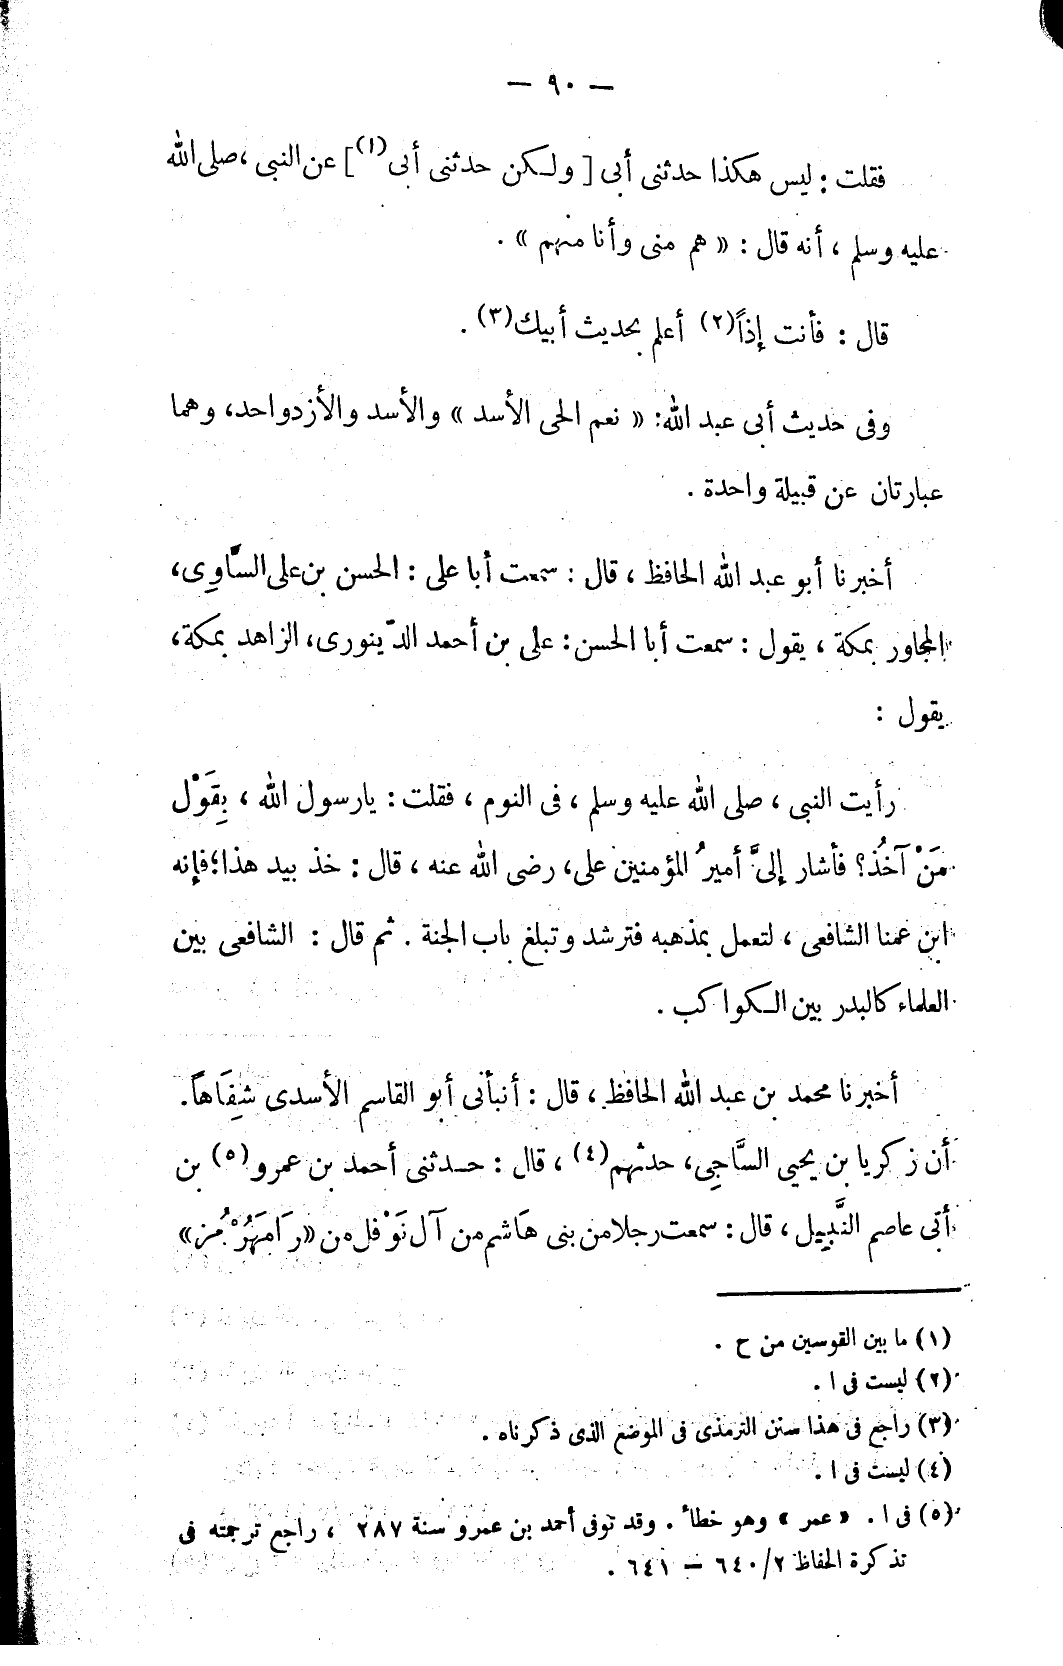 — ٩٠ —
فقلت : ليس هكذا حدثنى أبى [ ولكن حدثنى أبى(١) ] عن النبى ، صلى الله
عليه وسلم ، أنه قال : « هم منى وأنا منهم » .
قال : فأنت إذاً(٢) أعلم بحديث أبيك(٣) .
وفى حديث أبى عبد الله: « نعم الحى الأسد » والأسد والأزد واحد، وهما
عبارتان عن قبيلة واحدة .
أخبرنا أبو عبد الله الحافظ ، قال : سمعت أبا على : الحسن بن على السَّاوِى،
المجاور بمكة ، يقول : سمعت أبا الحسن : على بن أحمد الدّينورى، الزاهد بمكة،
يقول :
رأيت النبى ، صلى الله عليه وسلم ، فى النوم ، فقلت : يارسول الله ، بِقَوْل
مَنْ آخُذ؟ فأشار إلىَّ أميرُ المؤمنين على، رضى الله عنه ، قال : خذ بيد هذا؛فإنه
ابن عمنا الشافعى ، لتعمل بمذهبه فترشد وتبلغ باب الجنة . ثم قال : الشافعى بين
العلماء كالبدر بين الكواكب .
أخبرنا محمد بن عبد الله الحافظ ، قال : أنبأنى أبو القاسم الأسدى شِفَاهاً.
أن زكريا بن يحيى السَّاجِى، حدثهم(٤) ، قال : حدثنى أحمد بن عمرو(٥) بن
أبى عاصم النَّبِيل ، قال : سمعت رجلا من بنى هَاشم من آل نَوْفل من «رَامَهُرْمُز»
(١) ما بين القوسين من ح .
(٢) ليست فى ا .
(٣) راجع فى هذا سنن الترمذى فى الموضع الذى ذكرناه .
(٤) ليست فى ا .
(٥) فى ا . « عمر » وهو خطأ . وقد توفى أحمد بن عمرو سنة ٢٨٧ ، راجع ترجمته فى
تذكرة الحفاظ ٢/٦٤٠ – ٦٤١ .